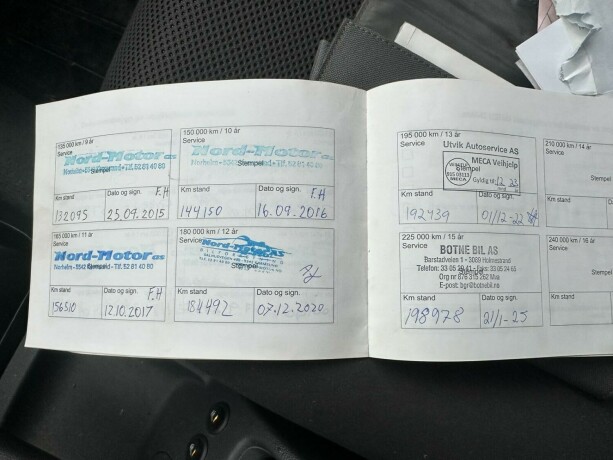 135 000 km / 9 år
Service
Nord-Motor as
Stempel
Km stand
Dato og sign.
F.H
132095
25.09.2015
150 000 km / 10 år
Service
Nord-Motor as
Stempel
Km stand
Dato og sign.
F.H
144150
16.09.2016
165 000 km / 11 år
Service
Nord-Motor as
Tlf. 52 81 40 80
Km stand
Dato og sign.
F.H
156510
12.10.2017
180 000 km / 12 år
Service
Nord-Motor AS
Stempel
Km stand
Dato og sign.
184492
07.12.2020
195 000 km / 13 år
Service
Utvik Autoservice AS
MECA Veihjelp
Stempel
MECA
Gyldig til: 12 23
Km stand
Dato og sign.
192439
01/12-22
225 000 km / 15 år
Service
BOTNE BIL AS
Barstadveien 1 - 3089 Holmestrand
Telefon: 33 05 28 41 - Faks: 33 05 24 65
Stempel
E-post: bgr@botnebil.no
Km stand
Dato og sign.
198978
21/1-25
210 000 km / 14 år
Service
Stempel
Km stand
240 000 km / 16 år
Service
Km stand